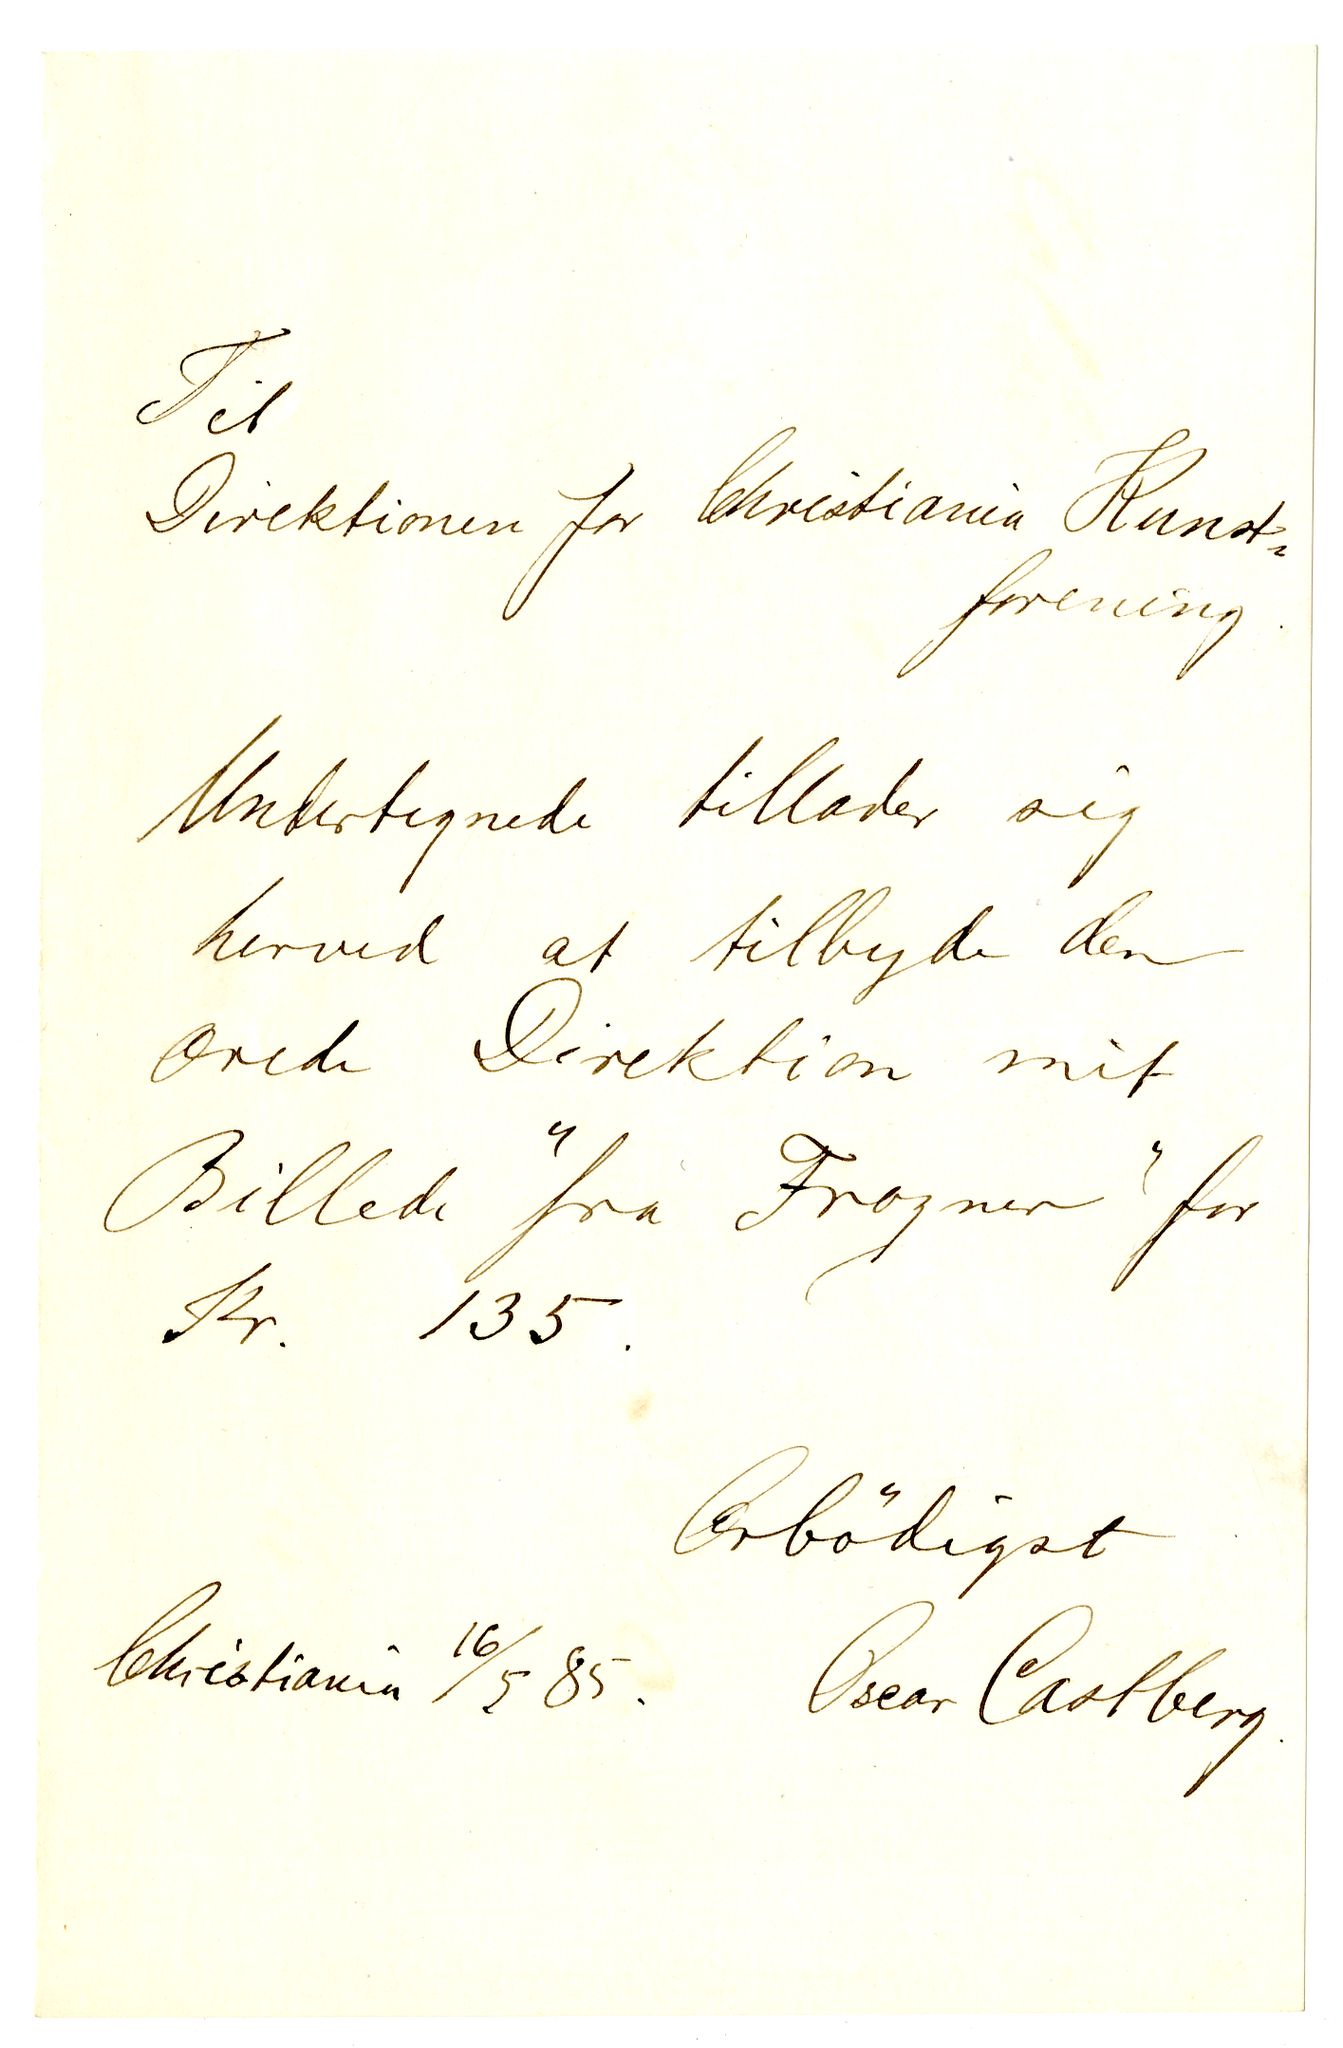 Til
Direktionen for Christiania Kunst=
forening.
Undertegnede tillader sig
herved at tilbyde den
ærede Direktion mit
Billede "fra Frogner" for
Kr. 135.
Ærbödigst
Christiania 16/5 85. Oscar Castberg.